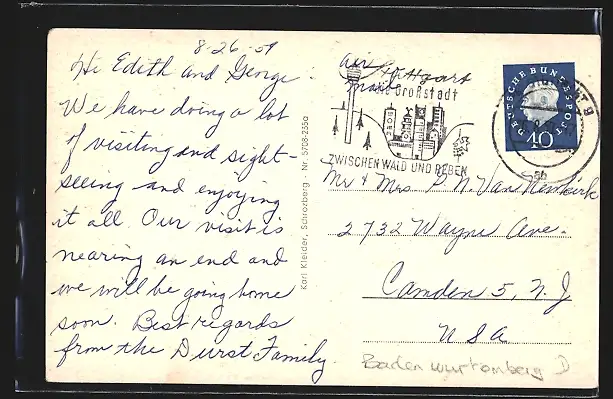 8-26-59
Hi Edith and George
We have doing a lot
of visiting and sight-
seeing and enjoying
it all. Our visit is
nearing an end and
we will be going home
soon. Best regards
from the Durst Family
Karl Kleider, Schrozberg · Nr. 5708-235a
air
mail
Stuttgart
die Großstadt
ZWISCHEN WALD UND REBEN
DEUTSCHE BUNDESPOST
40
Mr & Mrs P. N. Van Newkirk
2732 Wayne Ave.
Camden 5, N. J
USA
Baden Wurtemberg D